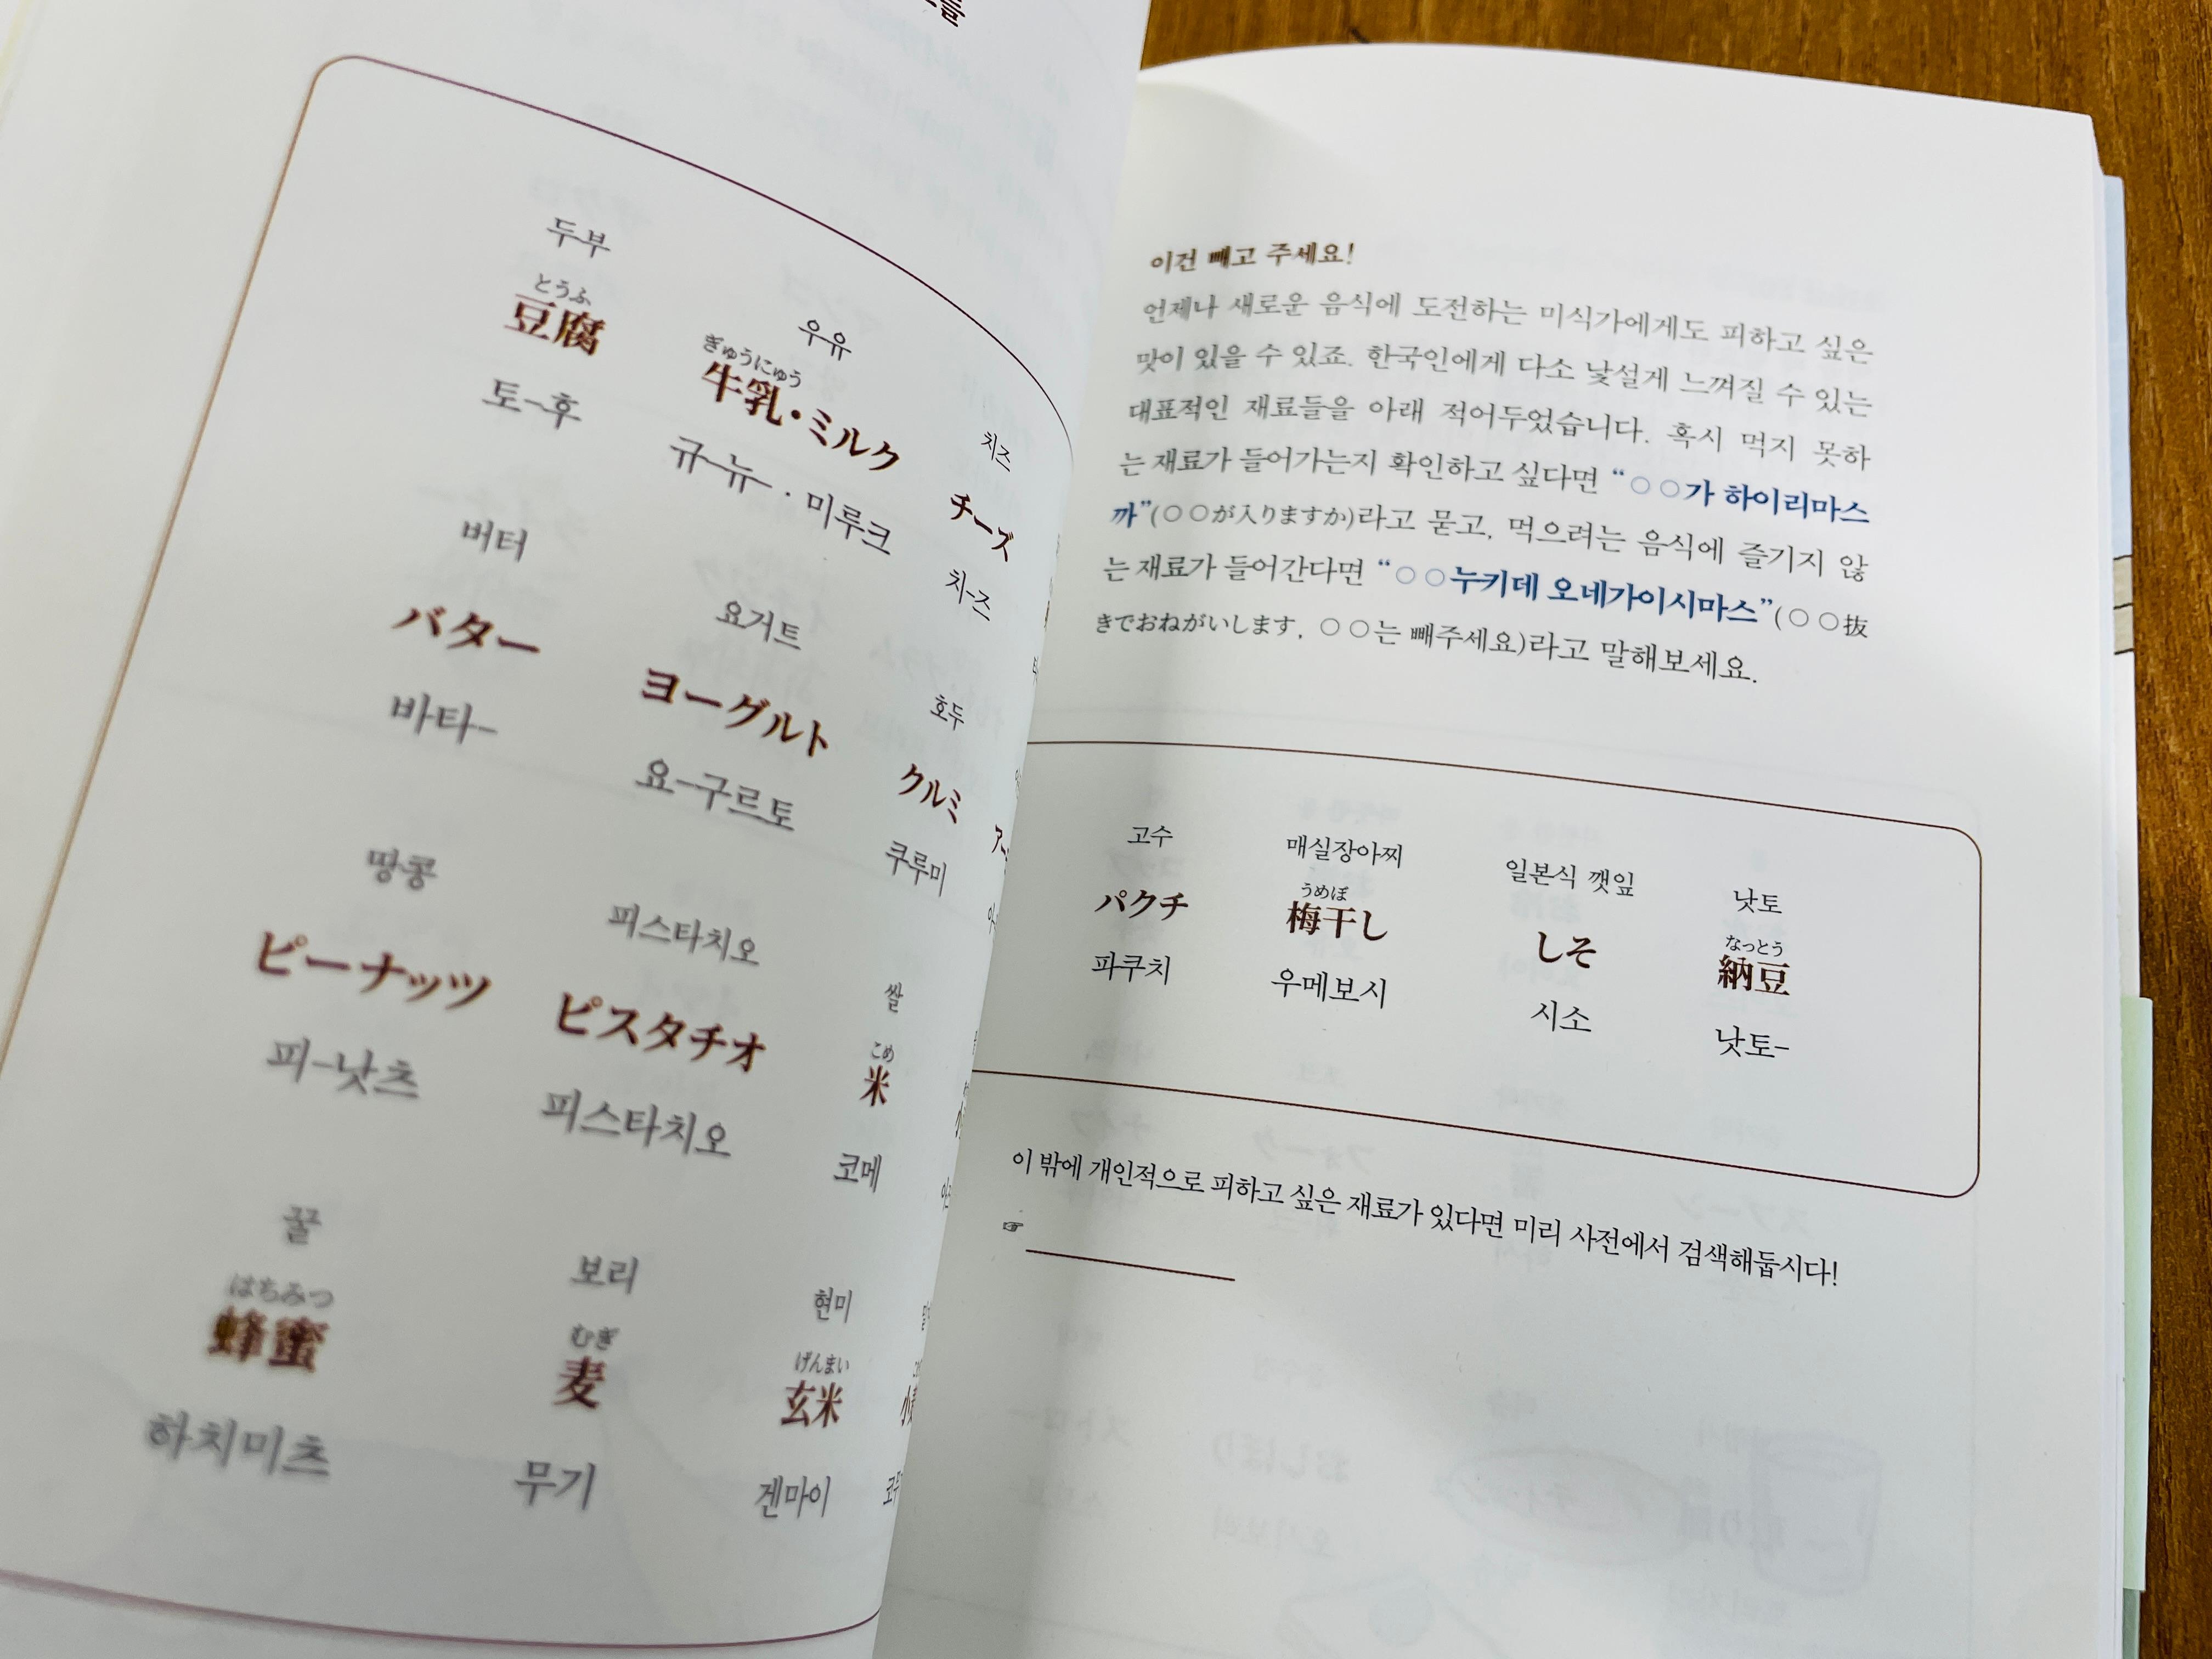 두부
とうふ
豆腐
토-후
우유
ぎゅうにゅう
牛乳・ミルク
규-뉴-・미루크
치즈
チーズ
치-즈
버터
バター
바타-
요거트
ヨーグルト
요-구르토
호두
クルミ
쿠루미
땅콩
ピーナッツ
피-낫츠
피스타치오
ピスタチオ
피스타치오
쌀
こめ
米
코메
꿀
はちみつ
蜂蜜
하치미츠
보리
むぎ
麦
무기
현미
げんまい
玄米
겐마이
이건 빼고 주세요!
언제나 새로운 음식에 도전하는 미식가에게도 피하고 싶은
맛이 있을 수 있죠. 한국인에게 다소 낯설게 느껴질 수 있는
대표적인 재료들을 아래 적어두었습니다. 혹시 먹지 못하
는 재료가 들어가는지 확인하고 싶다면 “○○가 하이리마스
까”(○○が入りますか)라고 묻고, 먹으려는 음식에 즐기지 않
는 재료가 들어간다면 “○○누키데 오네가이시마스”(○○抜
きでおねがいします, ○○는 빼주세요)라고 말해보세요.
고수
パクチ
파쿠치
매실장아찌
うめぼ
梅干し
우메보시
일본식 깻잎
しそ
시소
낫토
なっとう
納豆
낫토-
이 밖에 개인적으로 피하고 싶은 재료가 있다면 미리 사전에서 검색해둡시다!
☞